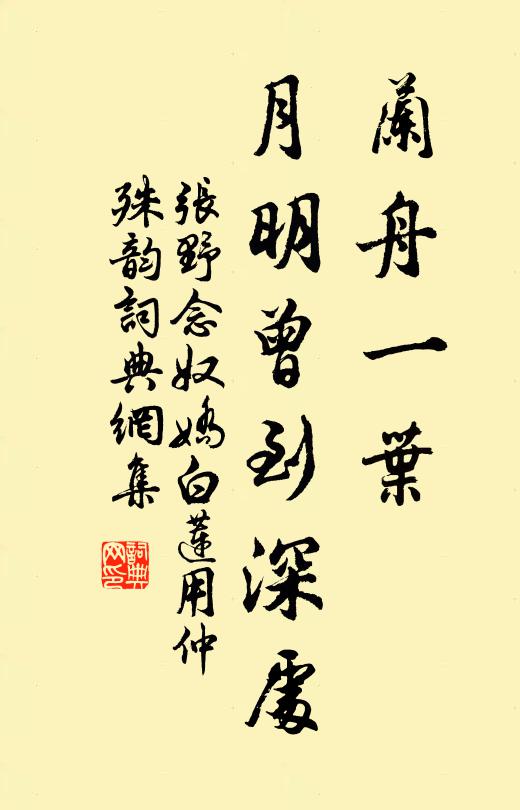 蘭舟一葉
月明曾到深處
張野念奴嬌白蓮用仲
殊韵詞典網集
詞典
网印